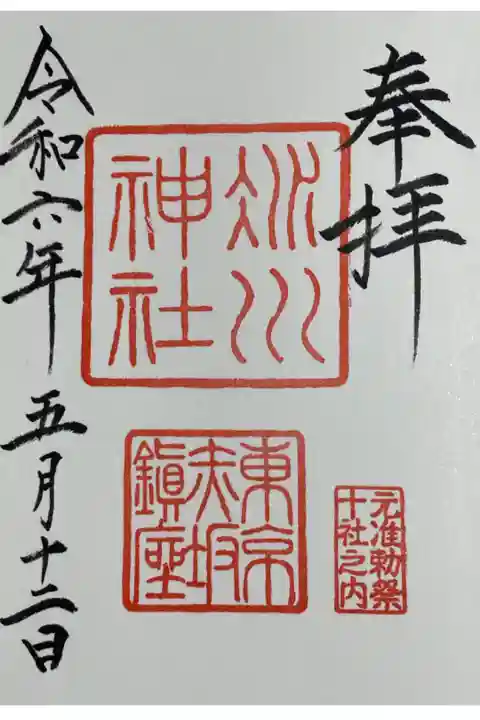 奉拝
氷川
神社
東京
赤坂
鎮座
元准勅祭
十社之内
令和六年 五月十二日